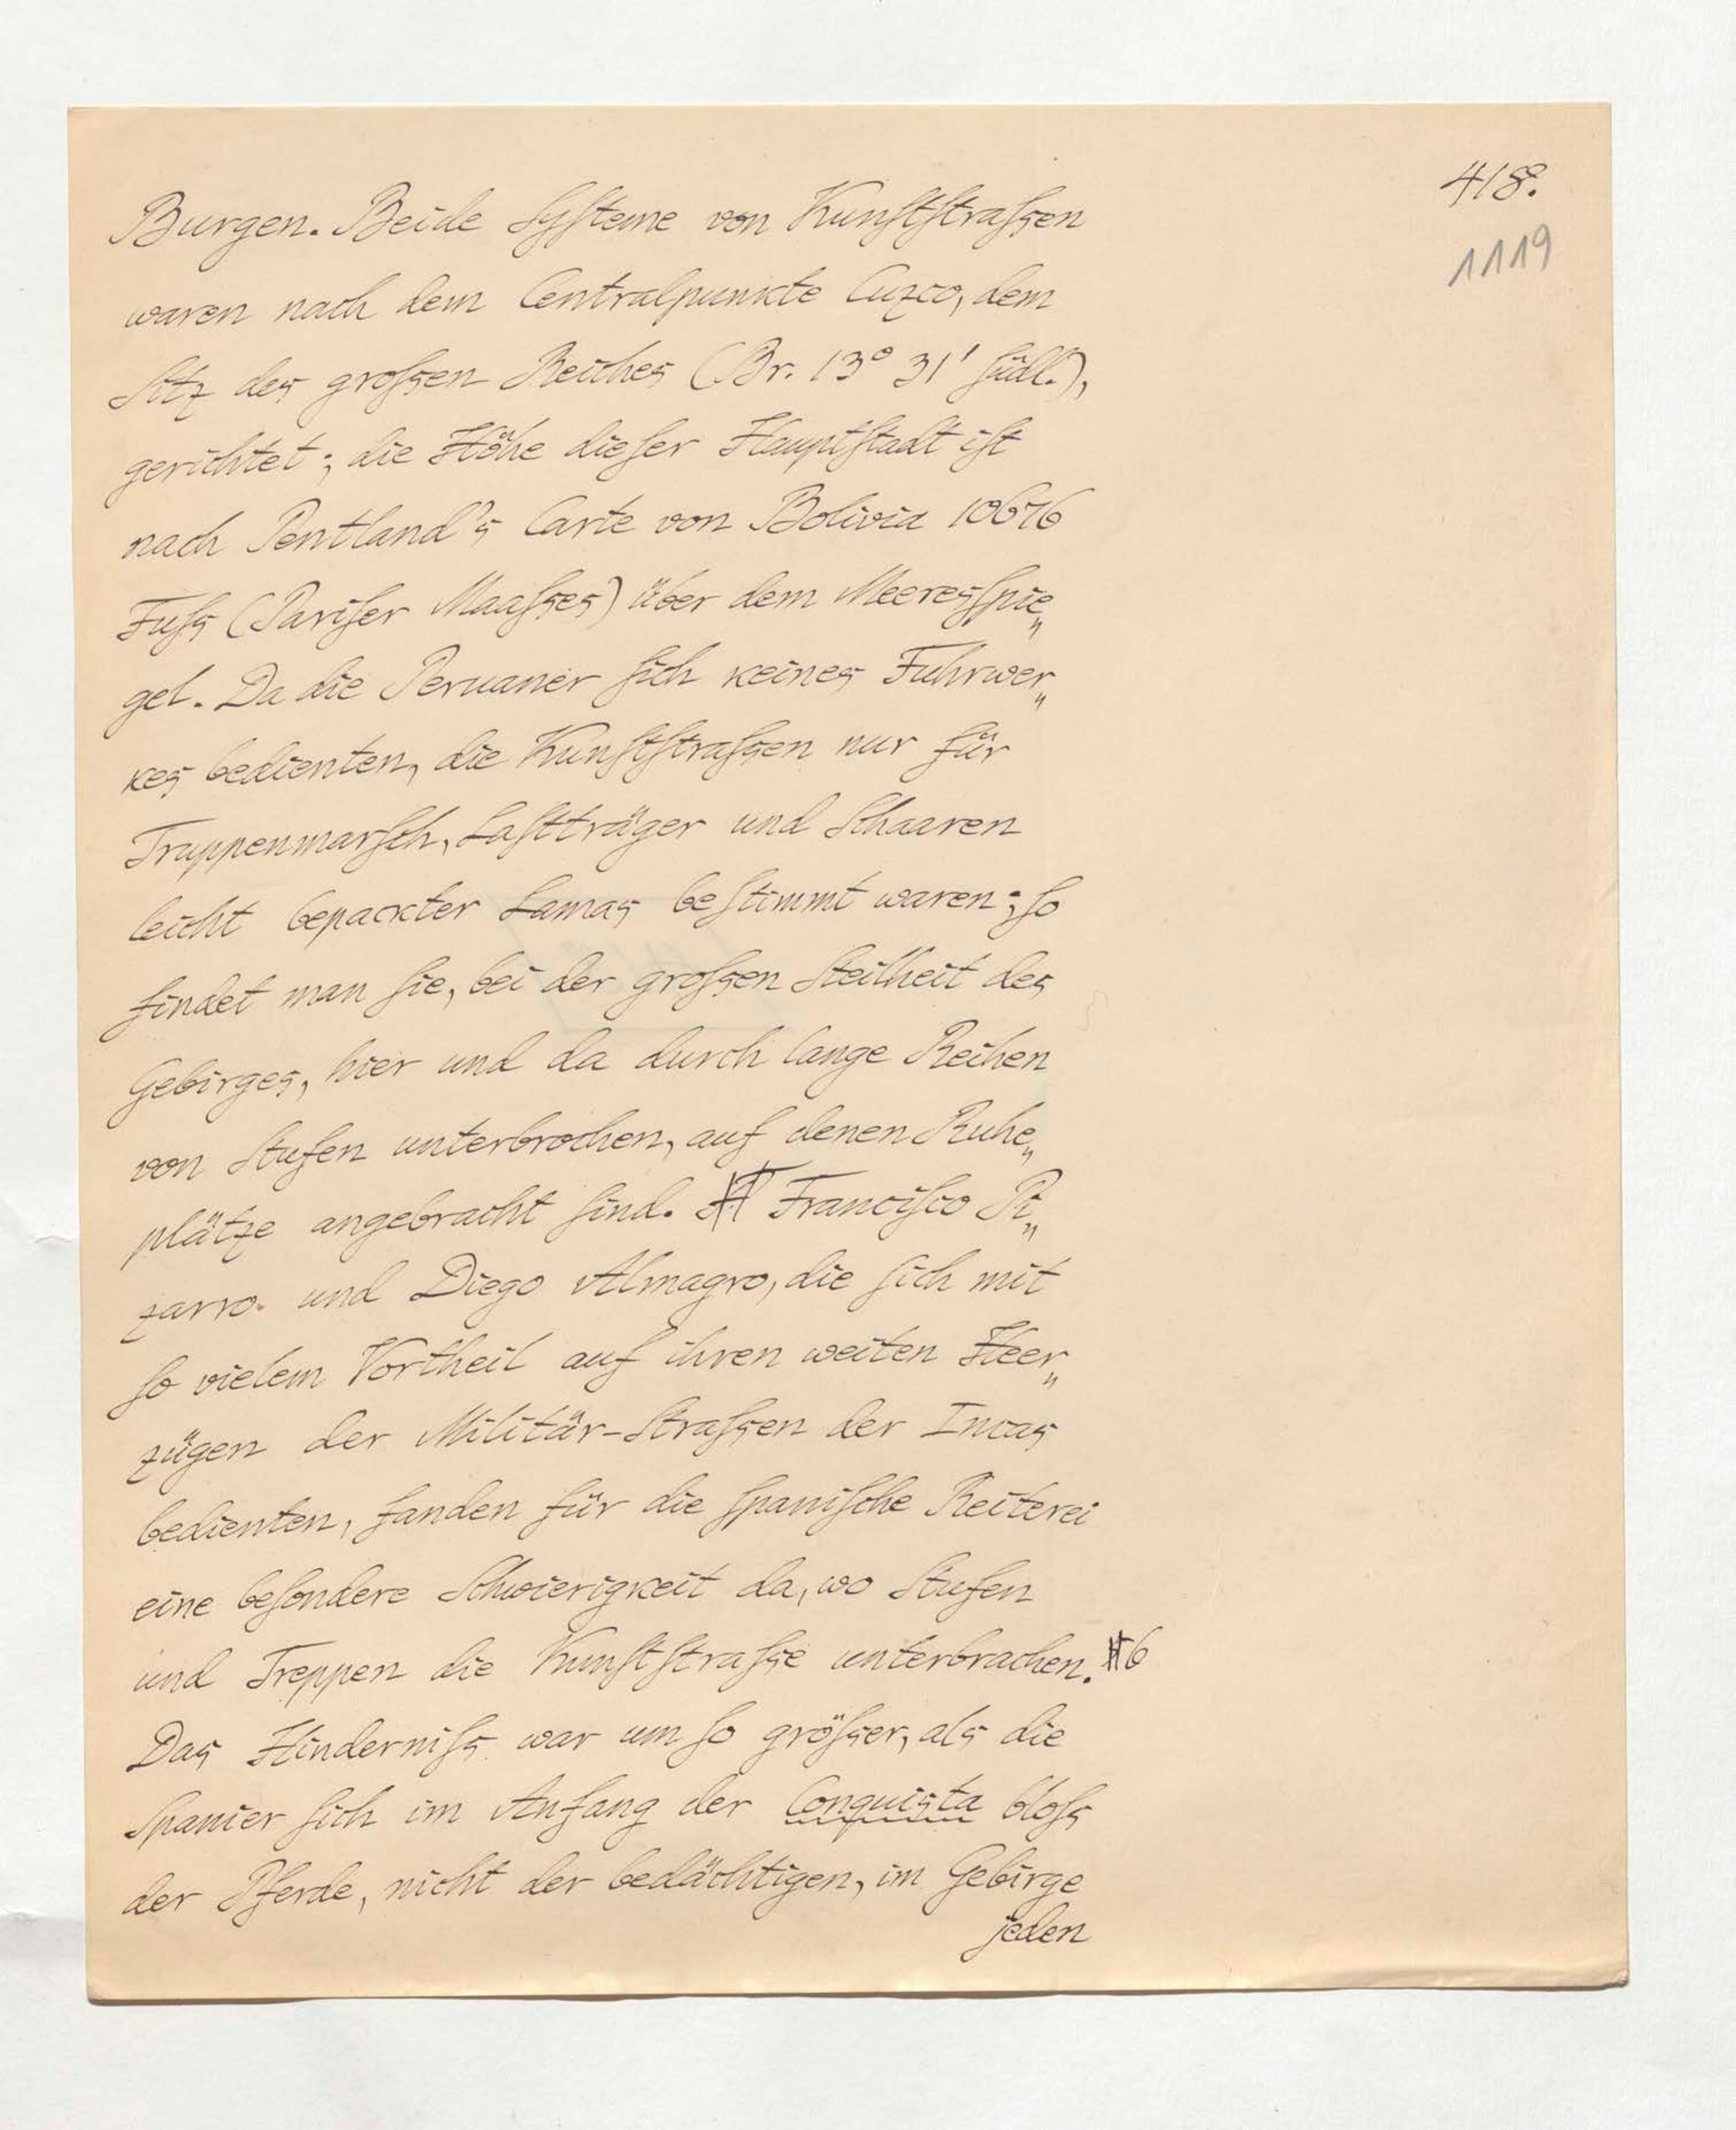 418.
1119
Burgen. Beide Systeme von Kunststraſsen
waren nach dem Centralpunkte Cuzco, dem
Sitz des groſsen Reiches (Br. 13° 31' südl.),
gerichtet; die Höhe dieser Hauptstadt ist
nach Pentland's Carte von Bolivia 10676
Fuſs (Pariser Maaſses) über dem Meeresspie„
gel. Da die Peruaner sich keines Fuhrwer„
kes bedienten, die Kunststraſsen nur für
Truppenmarsch, Lastträger und Schaaren
leicht bepackter Lamas bestimmt waren; so
findet man sie, bei der groſsen Steilheit des
Gebirges, hier und da durch lange Reihen
von Stufen unterbrochen, auf denen Ruhe„
plätze angebracht sind. Francisco Pi„
zarro und Diego Almagro, die sich mit
so vielem Vortheil auf ihren weiten Heer„
zügen der Militär-Straſsen der Incas
bedienten, fanden für die spanische Reiterei
eine besondere Schwierigkeit da, wo Stufen
und Treppen die Kunststraſse unterbrachen. 6
Das Hinderniſs war um so gröſser, als die
Spanier sich im Anfang der Conquista bloſs
der Pferde, nicht der bedächtigen, im Gebirge
jeden